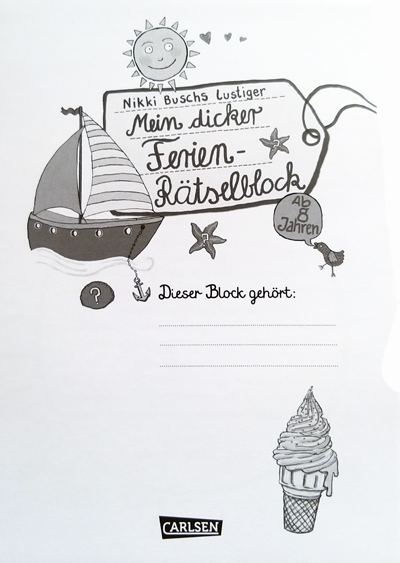 Nikki Buschs Lustiger
Mein dicker
Ferien-
Rätselblock
Ab
8
Jahren
?
?
?
Dieser Block gehört:
CARLSEN